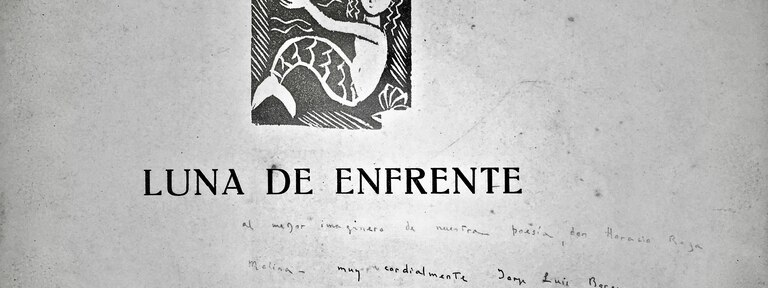 LUNA DE ENFRENTE
al mejor imaginero de nuestra poesía, don Horacio Rega
Molina - muy cordialmente Jorge Luis Borges